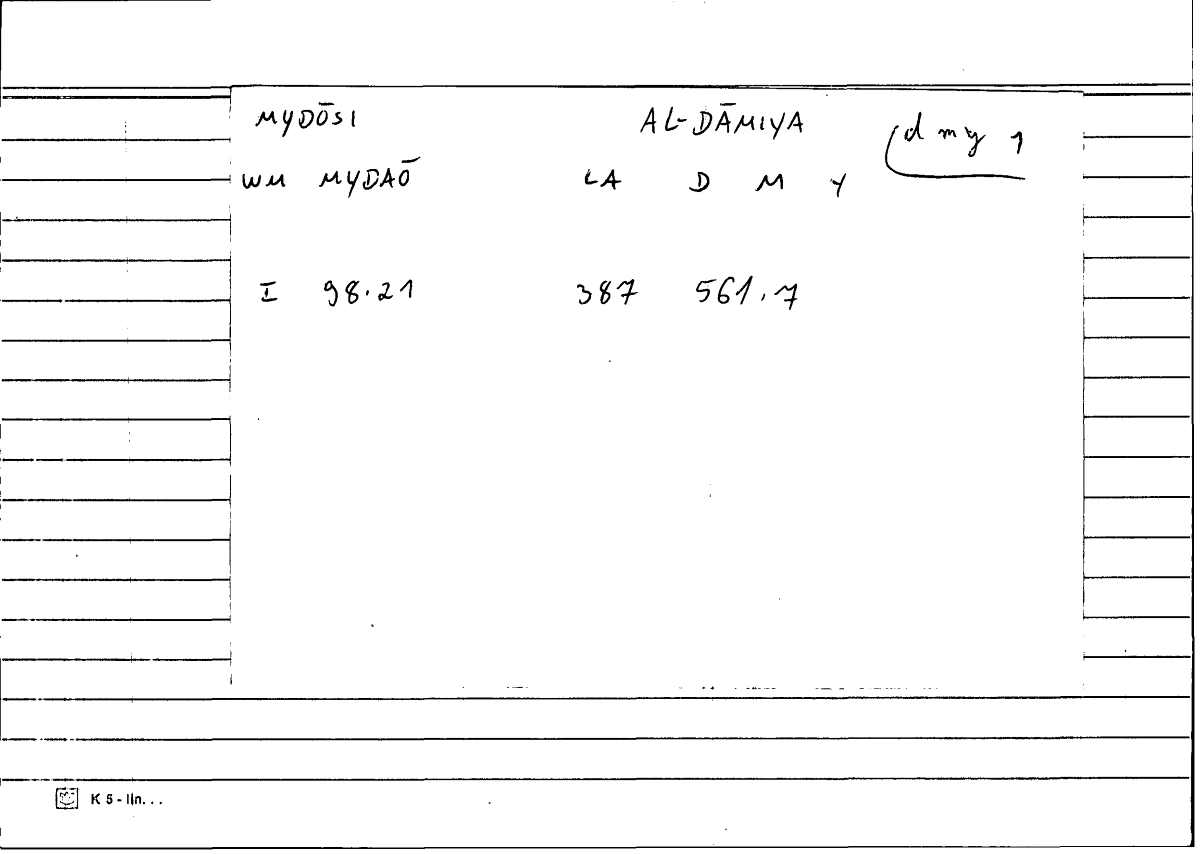 MYDŌSI AL-DĀMIYA dmy 1
WM MYDAŌ LA D M Y
I 98.21 387 561.7
K 5 - lin...